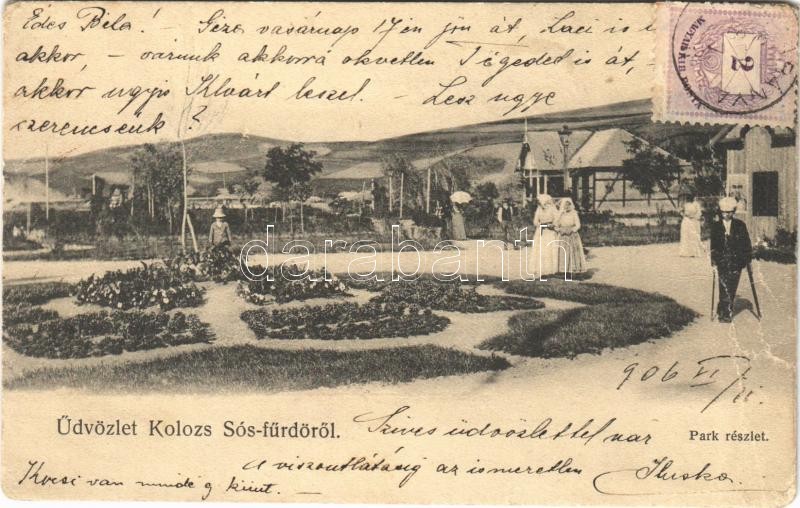 Édes Béla! – Géza vasárnap 17-én jön át, Laci is
akkor, – várunk akkorra okvetlen Tégedet is át, –
akkor ugyis Klvárt leszel. – Lesz ugye
szerencsénk?
MAGYAR KIR. POSTA
2
BÁNYA
darabanth.com
906 VI/11.
Üdvözlet Kolozs Sós-fürdőről.
Park részlet.
Szives üdvözlettel vár
a viszontlátásig az ismeretlen Iluska.
Kocsi van mindég künt. –